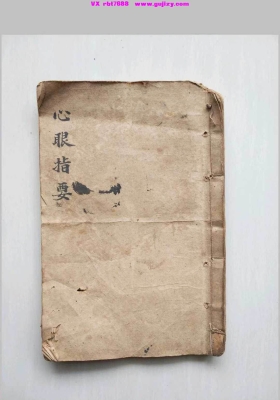 VX rbt7988 www.gojizy.com
心眼指要